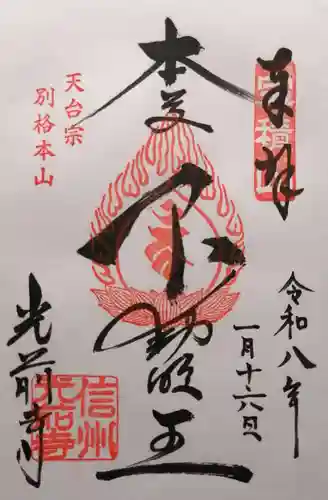 奉拝
令和八年
一月十六日
本尊
不動明王
天台宗
別格本山
光前寺
信州
光前寺